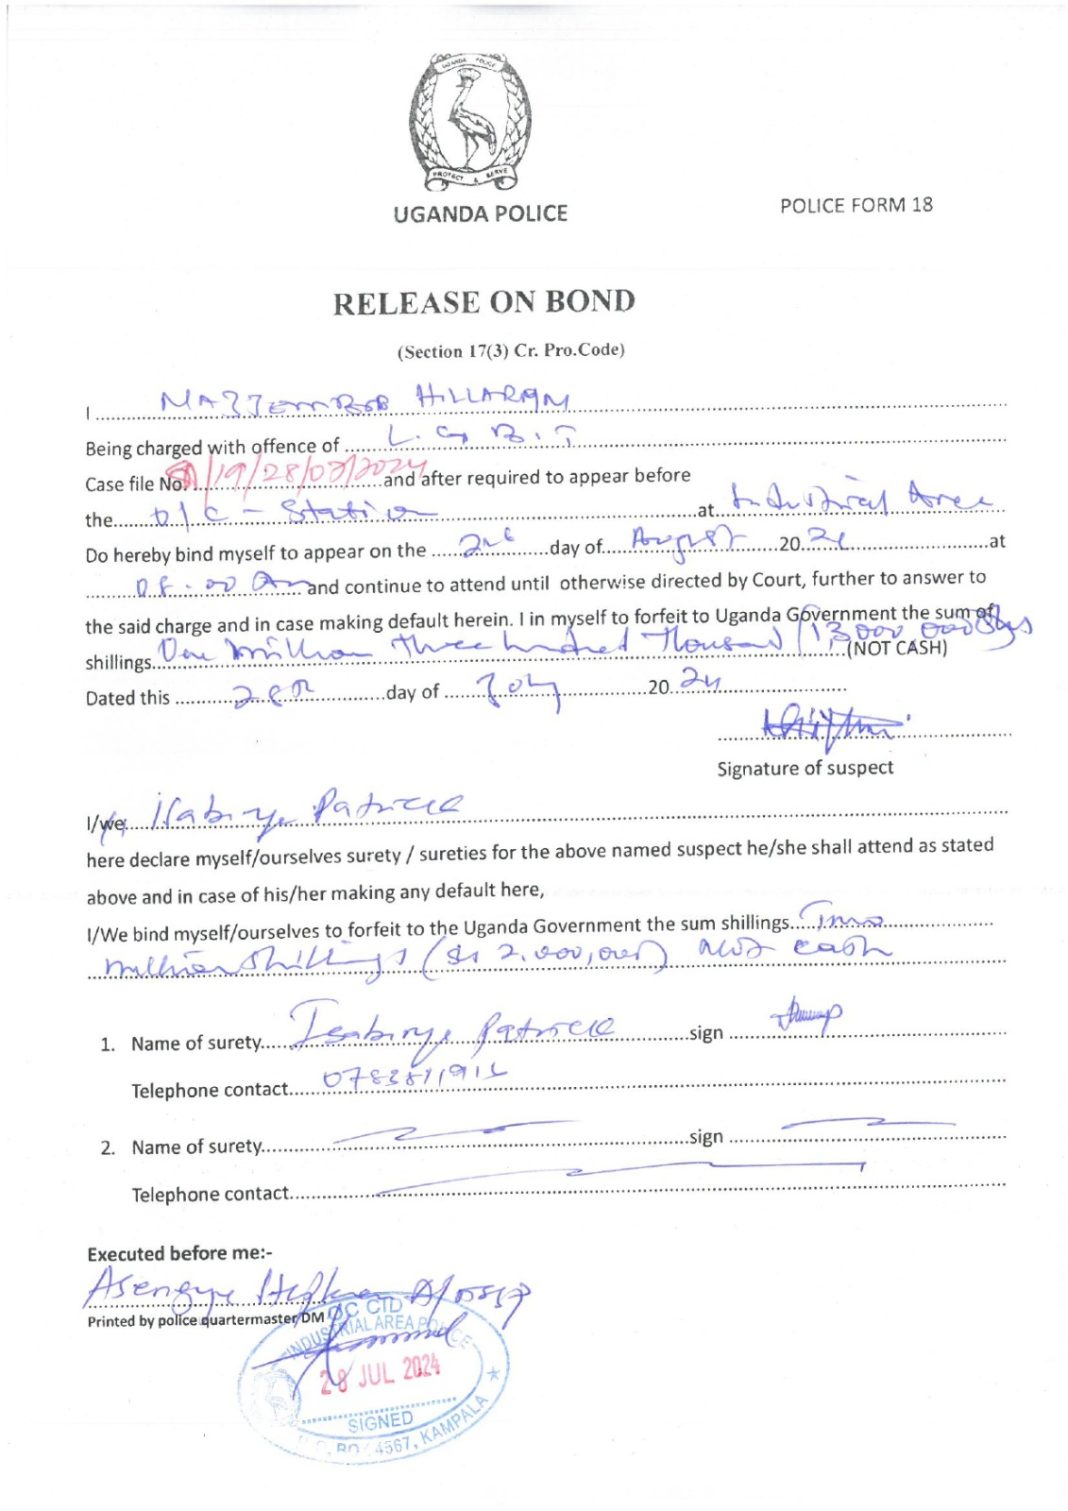 UGANDA POLICE
PROTECT & SERVE
UGANDA POLICE
POLICE FORM 18
RELEASE ON BOND
(Section 17(3) Cr. Pro.Code)
I
Being charged with offence of L.G.B.T
Case file No. /19/28/07/2024 and after required to appear before
the O/C - Station at Industrial Area
Do hereby bind myself to appear on the 2nd day of August 2024 at
08.00 Am and continue to attend until otherwise directed by Court, further to answer to
the said charge and in case making default herein. I in myself to forfeit to Uganda Government the sum of
shillings One million three hundred thousand (NOT CASH)
Dated this 28th day of July 2024
Signature of suspect
I/we Isabirye Patrick
here declare myself/ourselves surety / sureties for the above named suspect he/she shall attend as stated
above and in case of his/her making any default here,
I/We bind myself/ourselves to forfeit to the Uganda Government the sum shillings Two
million shillings (sh 2,000,000) not cash
1. Name of surety Isabirye Patrick sign
Telephone contact
2. Name of surety sign
Telephone contact
Executed before me:-
Asengye Stephen
Printed by police quartermaster/DM
OC CID
INDUSTRIAL AREA POLICE
28 JUL 2024
SIGNED
P.O. BOX 4567, KAMPALA